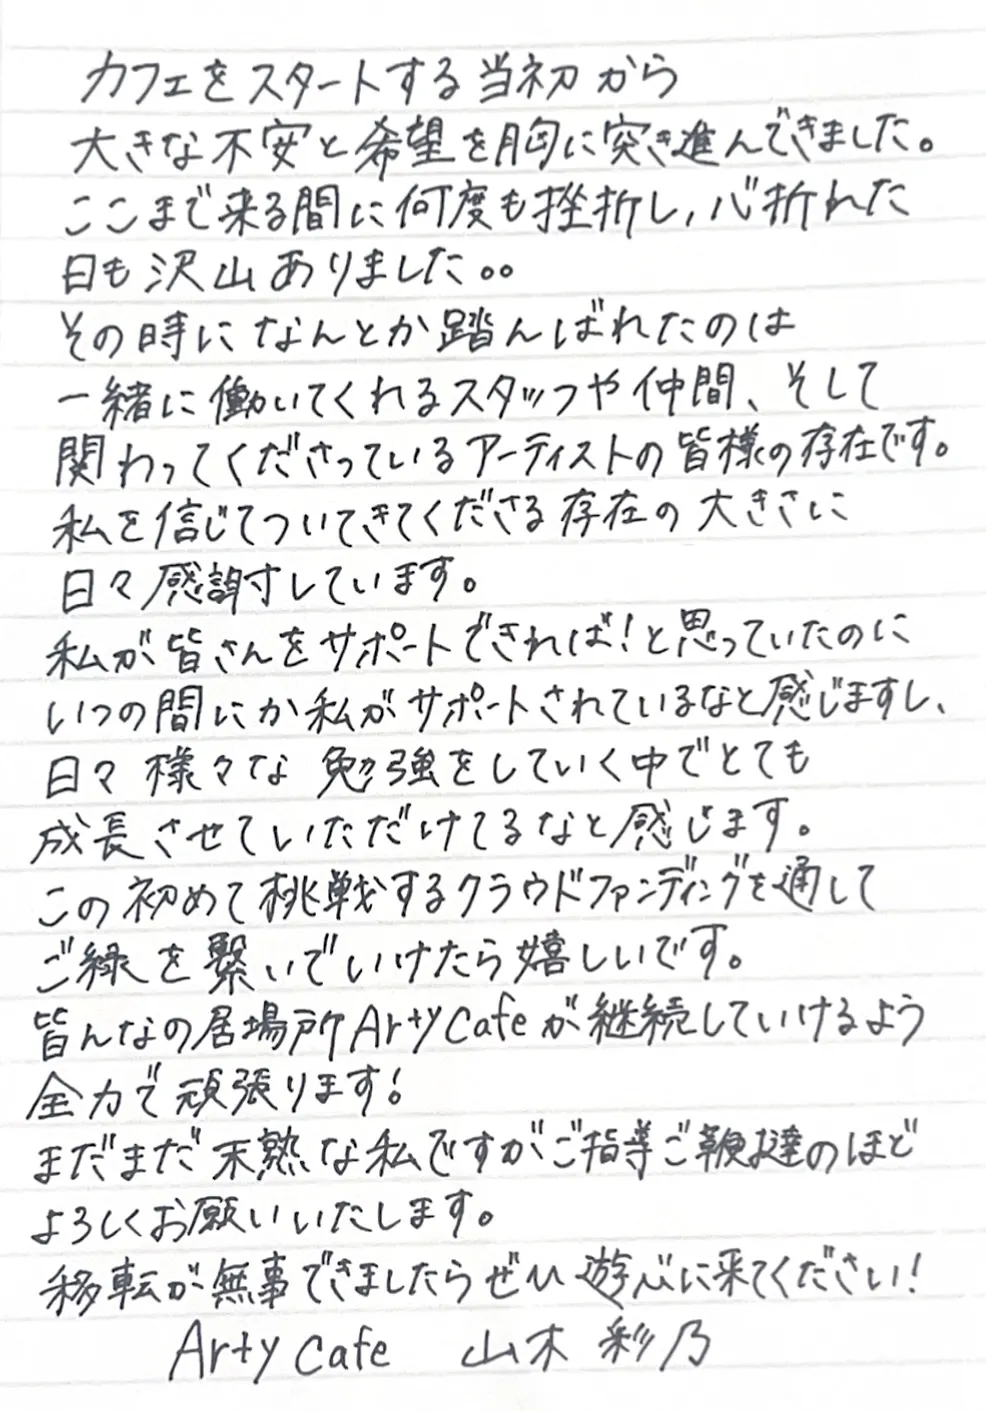 カフェをスタートする当初から
大きな不安と希望を胸に突き進んできました。
ここまで来る間に何度も挫折し、心折れた
日も沢山ありました。。
その時になんとか踏んばれたのは
一緒に働いてくれるスタッフや仲間、そして
関わってくださっているアーティストの皆様の存在です。
私を信じてついてきてくださる存在の大きさに
日々感謝しています。
私が皆さんをサポートできれば!と思っていたのに
いつの間にか私がサポートされているなと感じますし、
日々様々な勉強をしていく中でとても
成長させていただけてるなと感じます。
この初めて挑戦するクラウドファンディングを通して
ご縁を繋いでいけたら嬉しいです。
皆んなの居場所Arty Cafeが継続していけるよう
全力で頑張ります!
まだまだ未熟な私ですがご指導ご鞭撻のほど
よろしくお願いいたします。
移転が無事できましたらぜひ遊びに来てください!
Arty cafe 山木彩乃